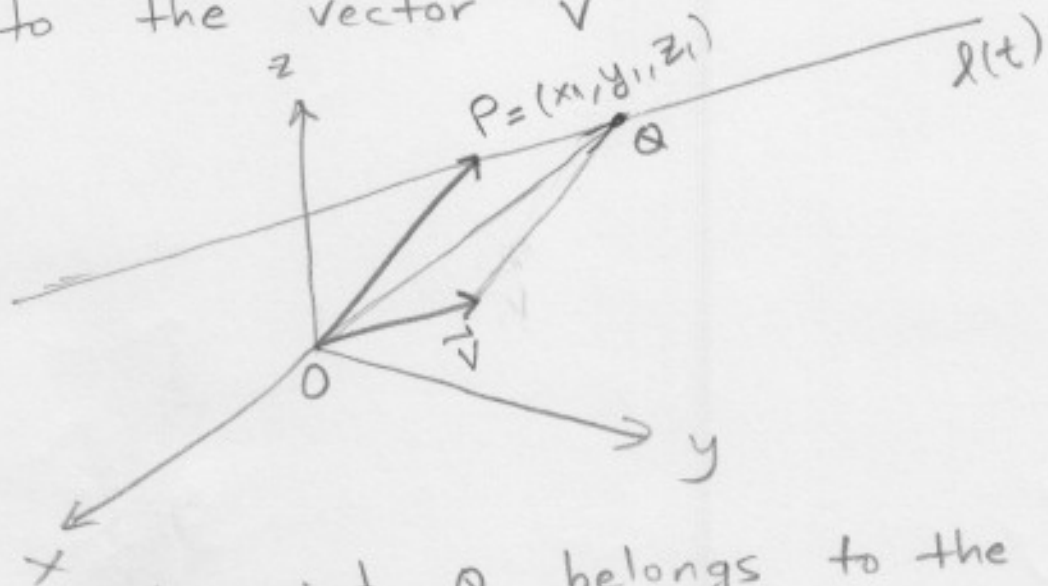 to the vector V
z
P = (x₁, y₁, z₁)
l(t)
Q
V⃗
O
y
x
Q belongs to the